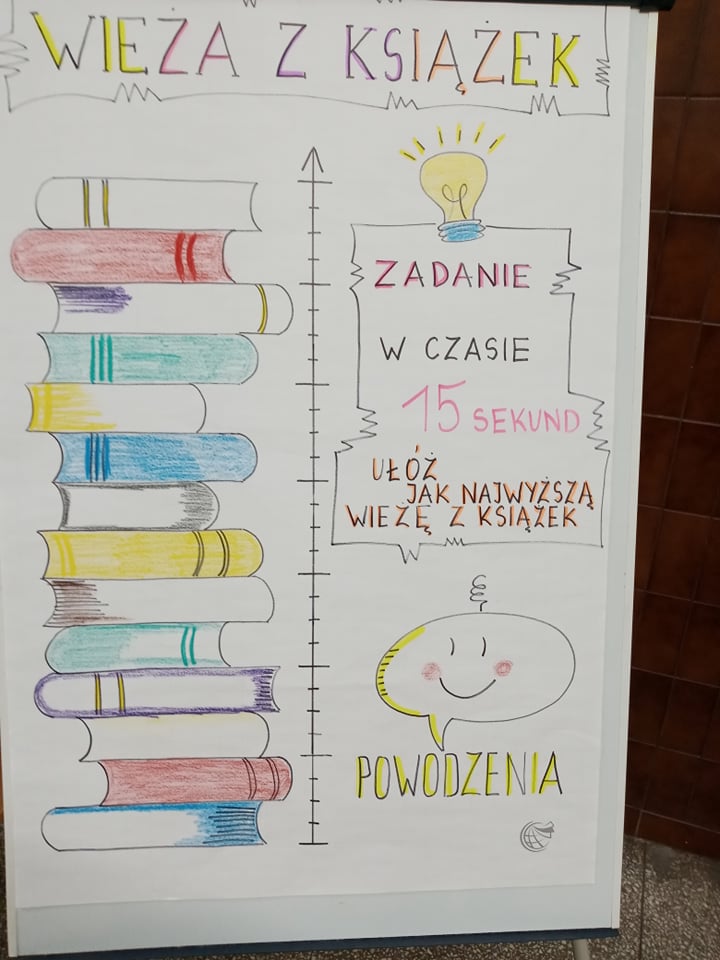 WIEŻA Z KSIĄŻEK
ZADANIE
W CZASIE
15 SEKUND
UŁÓŻ
JAK NAJWYŻSZĄ
WIEŻĘ Z KSIĄŻEK
POWODZENIA